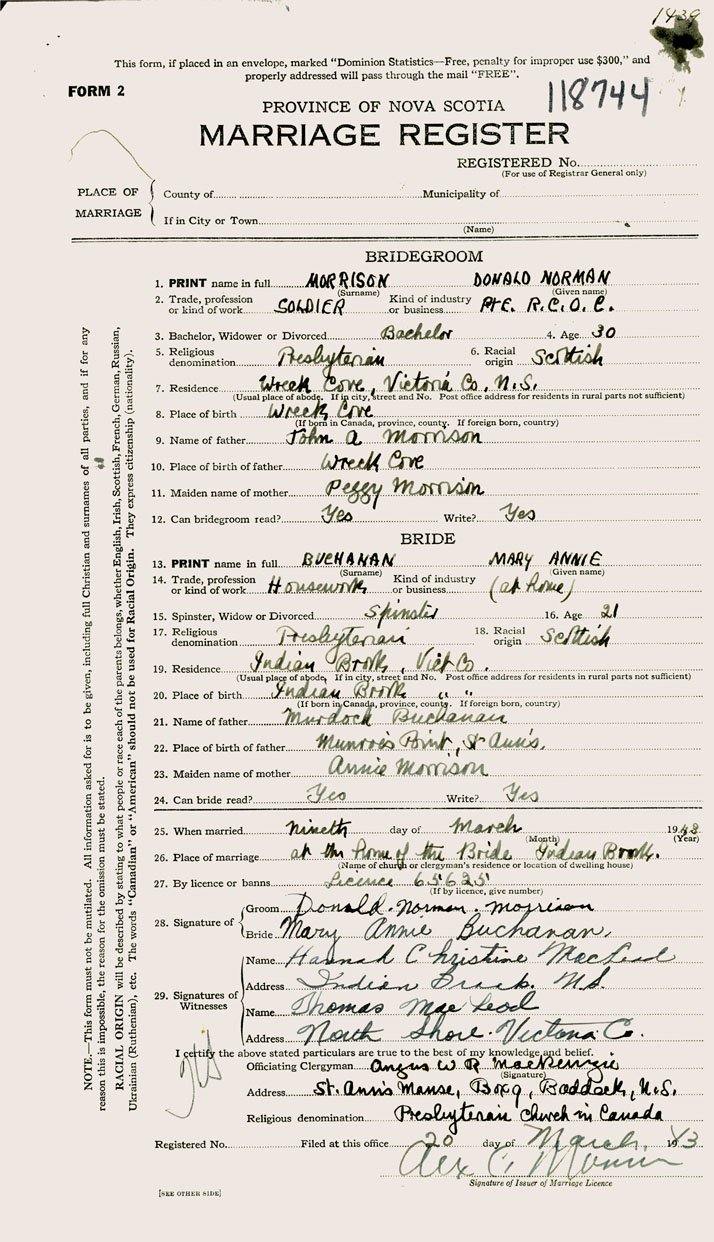 1439
This form, if placed in an envelope, marked "Dominion Statistics—Free, penalty for improper use $300," and
properly addressed will pass through the mail "FREE".
FORM 2
118744
PROVINCE OF NOVA SCOTIA
MARRIAGE REGISTER
REGISTERED No.
(For use of Registrar General only)
PLACE OF MARRIAGE
County of Municipality of
If in City or Town
(Name)
BRIDEGROOM
1. PRINT name in full MORRISON DONALD NORMAN
(Surname) (Given name)
2. Trade, profession or kind of work SOLDIER Kind of industry or business PtE. R.C.O.C.
3. Bachelor, Widower or Divorced Bachelor 4. Age 30
5. Religious denomination Presbyterian 6. Racial origin Scottish
7. Residence Wreck Cove, Victoria Co. N.S.
(Usual place of abode. If in city, street and No. Post office address for residents in rural parts not sufficient)
8. Place of birth Wreck Cove
(If born in Canada, province, county. If foreign born, country)
9. Name of father John A Morrison
10. Place of birth of father Wreck Cove
11. Maiden name of mother Peggy Morrison
12. Can bridegroom read? Yes Write? Yes
BRIDE
13. PRINT name in full BUCHANAN MARY ANNIE
(Surname) (Given name)
14. Trade, profession or kind of work Housework Kind of industry or business (at home)
15. Spinster, Widow or Divorced Spinster 16. Age 21
17. Religious denomination Presbyterian 18. Racial origin Scottish
19. Residence Indian Brook, Vict Co.
(Usual place of abode, If in city, street and No. Post office address for residents in rural parts not sufficient)
20. Place of birth Indian Brook " "
(If born in Canada, province, county. If foreign born, country)
21. Name of father Murdock Buchanan
22. Place of birth of father Munroe's Point, St Ann's.
23. Maiden name of mother Annie Morrison
24. Can bride read? Yes Write? Yes
25. When married nineth day of March 1943
(Month) (Year)
26. Place of marriage at the home of the Bride Indian Brook.
(Name of church or clergyman's residence or location of dwelling house)
27. By licence or banns Licence 65625
(If by licence, give number)
28. Signature of Groom Donald. Norman. Morrison
Bride Mary Annie Buchanan,
29. Signatures of Witnesses
Name Hannah Christine MacLeod
Address Indian Brook. N.S.
Name Thomas MacLeod
Address North Shore. Victoria Co.
I certify the above stated particulars are true to the best of my knowledge and belief.
Officiating Clergyman Angus W R MacKenzie
(Signature)
Address St. Ann's Manse, Box 9, Baddeck, N.S.
Religious denomination Presbyterian Church in Canada
Registered No. Filed at this office 20 day of March, 1943
Alex C Munro
Signature of Issuer of Marriage Licence
[SEE OTHER SIDE]
NOTE.—This form must not be mutilated. All information asked for is to be given, including full Christian and surnames of all parties, and if for any
reason this is impossible, the reason for the omission must be stated.
RACIAL ORIGIN will be described by stating to what people or race each of the parents belongs, whether English, Irish, Scottish, French, German, Russian,
Ukrainian (Ruthenian), etc. The words "Canadian" or "American" should not be used for Racial Origin. They express citizenship (nationality).